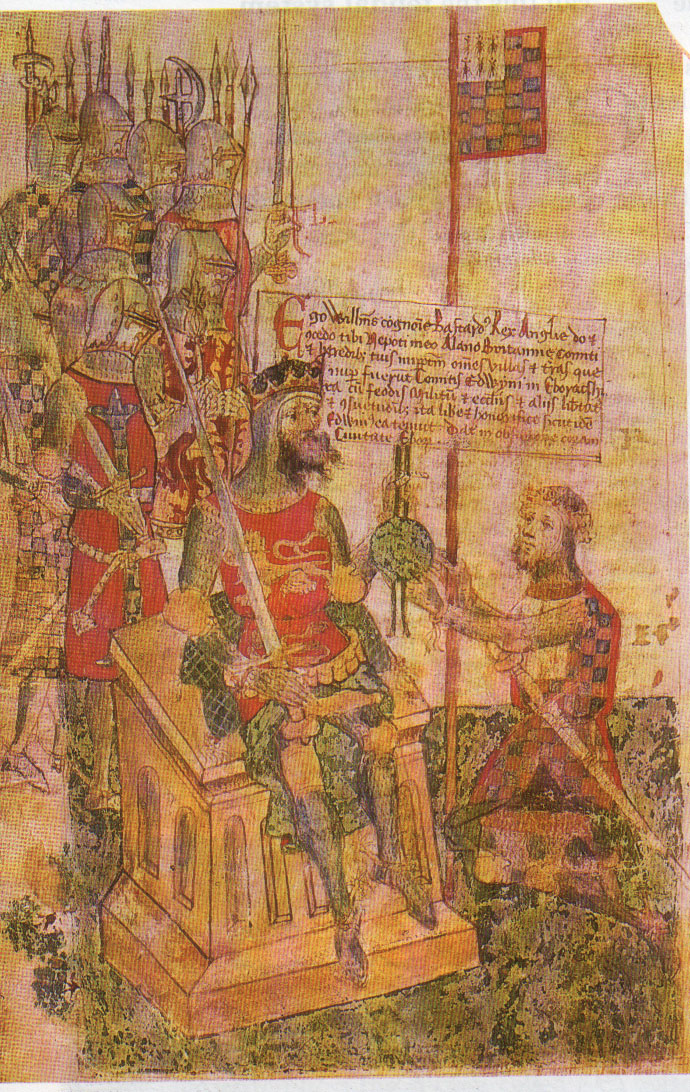 Ego Willms cognoie Bastard⁹ Rex Anglie do &
ꝯcedo tibi Nepoti meo Alano Britannie Comiti
& heredib; tuis imppm om̄es villas & t̄ras que
nup fuerūt Comitis Edwyni in Eboraschi.
cū feodis militū & ecctijs & alijs libtat
& ꝯsuetudib; ita libe & honorifice sicut idē
Edwin⁹ ea tenuit Dat in obsidione coram
Civitate Ebor